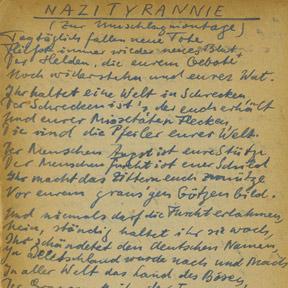 NAZITYRANNIE
(Zur Umschlagmontage)
Tagtäglich fallen neue Tote,
immer wieder neues Blut,
Der Helden, die eurem Gebote
Noch widerstehn und eurer Wut.
Ihr haltet eine Welt in Schrecken
Der Schrecken ist's, der euch erhält
Und eurer Missetaten Flecken,
Sie sind die Pfeiler eurer Welt.
Der Menschen Angst ist eure Stütze
Der Menschen Furcht ist euer Schild
Ihr macht das Zittern euch zunütze
Vor eurem grausigen Götzenbild.
Und niemals darf die Furcht erlahmen,
Nein, ständig haltet ihr sie wach,
Ihr schändetet den deutschen Namen,
Ja Deutschland wurde nach und nach
In aller Welt das Land des Bösen,
Der